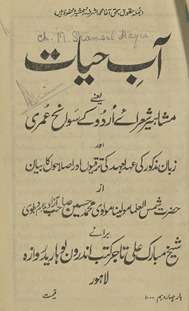 جملہ حقوق بحق آغا محمد اشرف
Ch. M. Shamsul Haque
آبِ حیات
یعنے
مشاہیر شعرائے اُردو کے سوانح عمری
اور
زبان مذکور کی عہد بعہد کی ترقیوں اور اصلاحوں کا بیان
از
حضرت شمس العلما مولینا مولوی محمد حسین صاحب آزاد دہلوی
برائے
شیخ مبارک علی تاجر کتب اندرون لوہاری دروازہ
لاہور
بار چہاردہم ۱۰۰۰ قیمت